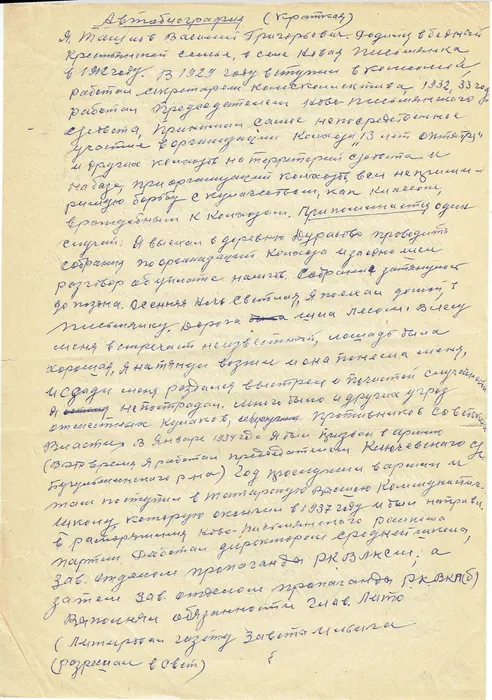 Автобиография (краткая)
Я, Ташлов Василий Григорьевич. Родился в бедной
крестьянской семье, в селе Новая Письмянка
в 1912 году. В 1929 году вступил в комсомол,
работал секретарем комсколлектива, 1932, 33 год
работал Председателем Ново-Письмянского
с/совета, принимал самое непосредственное
участие в организации колхоза "13 лет октября"
и других колхозов на территории с/совета и
на базе, при организации колхозов, вел неприми-
римую борьбу с кулачеством, как классом,
враждебным к колхозам. Припоминается один
случай. Я выехал в деревню Дурасово проводить
собрания по организации колхоза и заодно
разговор об уплате налога. Собрание затянулось
до поздна. Осенняя ночь светлая, я поехал домой, в
Письмянку, дорога шла лесом. В лесу
меня встречает неизвестный, лошадь была
хорошая, я натянул вожжи и она понесла меня,
и сзади меня раздался выстрел и по чистой случайности
я не пострадал. Много было и других угроз
от местных кулаков, противников Советской
Власти. В Январе 1934 года я был призван в армию
(в это время я работал председателем
Бугульминского р-на) Год прослужил в армии и
там поступил в Татарскую Высшую Коммунистич.
школу, которую окончил в 1937 году и был направлен
в распоряжения Ново-Письмянского райкома
партии. Работал директором средней школы,
Зав. отделом пропаганды РК ВЛКСМ, а
затем Зав. отделом пропаганды РК ВКП(б)
Выполнял обязанности глав. Лито
(Литировал газету Заветы Ильича
(разрешал в свет)